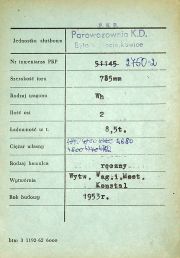 P.K.P.
Jednostka służbowa
Parowozownia K.D.
Nr inwentarza PKP
51145 2760-2
Szerokość toru
785mm
Rodzaj wagonu
Wh
Ilość osi
2
Ładowność w t.
8,5t.
Ciężar własny
4680
Rodzaj hamulca
ręczny
Wytwórnia
Wytw. Wag.i,Most.
Konstal
Rok budowy
1953r.